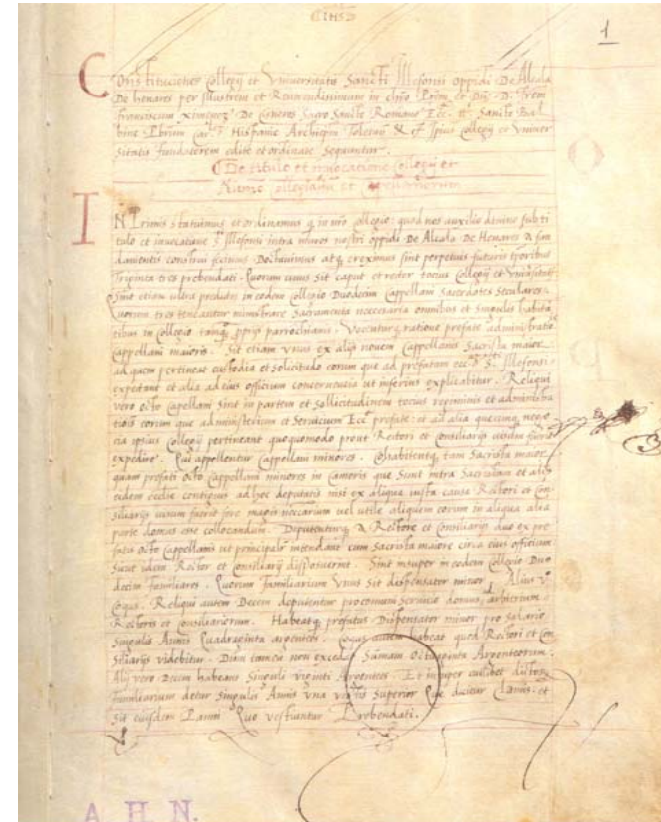 1
Constitutiones Collegij et Vniuersitatis Sancti Illefonsi oppidi De Alcala
De henares per Illustrem et Reuerendissimum in
franciscum ximenez De Cisneros Sacro Sancte Romane Ecc. Sancte Bal
bine Hispanie Archiepm Toletan Ipsius Collegij et Vniuer
sitatis fundatorem edite et ordinate Sequuntur.
De titulo et inuocatione Collegij et
Numero Collegialium et Capellanorum
IN Primis statuimus et ordinamus in collegio: quod nos auxilio diuino sub ti
tulo et inuocatione Illefonsi intra muros nostri oppidi De Alcala De Henares A fun
damentis construi fecimus atq ereximus sint perpetuis futuris
Triginta tres prebendati. Quorum unus sit caput et rector totius Collegij et
Sint etiam ultra predictos in eodem Collegio Duodecim Cappellani Sacerdotes Seculares.
Quorum tres teneantur ministrare Sacramenta necessaria omnibus et singulis habita
tibus in Collegio parrochianis. Vocenturq ratione prefate
Cappellani maiores. Sit etiam Vnus ex alijs nouem Cappellanis Sacrista maior
ad quem pertineat custodia et solicitudo eorum que ad prefatam Illefonsi
expectant et alia ad eius officium conuenientia ut inferius explicabitur. Reliqui
vero octo Capellani sint in partem et sollicitudinem totius regiminis et administra
eorum que ad ministerium et Seruicium prefate: et ad alia quecunq nego
cia ipsius Collegij pertineant quoquomodo prout Rectori et Consiliarijs
expedire. Qui appellentur Cappellani minores. tam Sacrista maior
quam prefati octo Cappellani minores in Cameris que Sunt intra
eidem contiguis ad hoc deputatis nisi ex aliqua iusta causa Rectori et Con
siliarijs uisum fuerit fore magis vel utile aliquem eorum in aliqua alia
parte domus esse collocandum. Deputenturq A Rectore et Consiliarijs duo ex pre
fatis octo Cappellanis ut intendant cum Sacrista maiore circa eius officium
sicut idem Rector et Consiliarij disposuerint. Sint insuper in eodem Collegio Duo
decim Familiares. Quorum Familiarium Vnus sit dispensator minor, Alius
Cocus. Reliqui autem Decem deputentur pro communi seruicio domus, arbitrium
Rectoris et Consiliariorum. Habeatq prefatus Dispensator minor pro salario
Singulis Annis Quadraginta argenteos. Cocus autem habeat quod Rectori et Con
siliarijs videbitur. Dum tamen non excedat Summam Octuaginta Argenteorum.
Alij vero Decem habeant Singuli viginti Argenteos. Et insuper cuilibet
Familiarium detur Singulis Annis Vna vestis Superior Que dicitur et
Sit eiusdem Panni Quo vestiuntur Prebendati.
A. H. N.